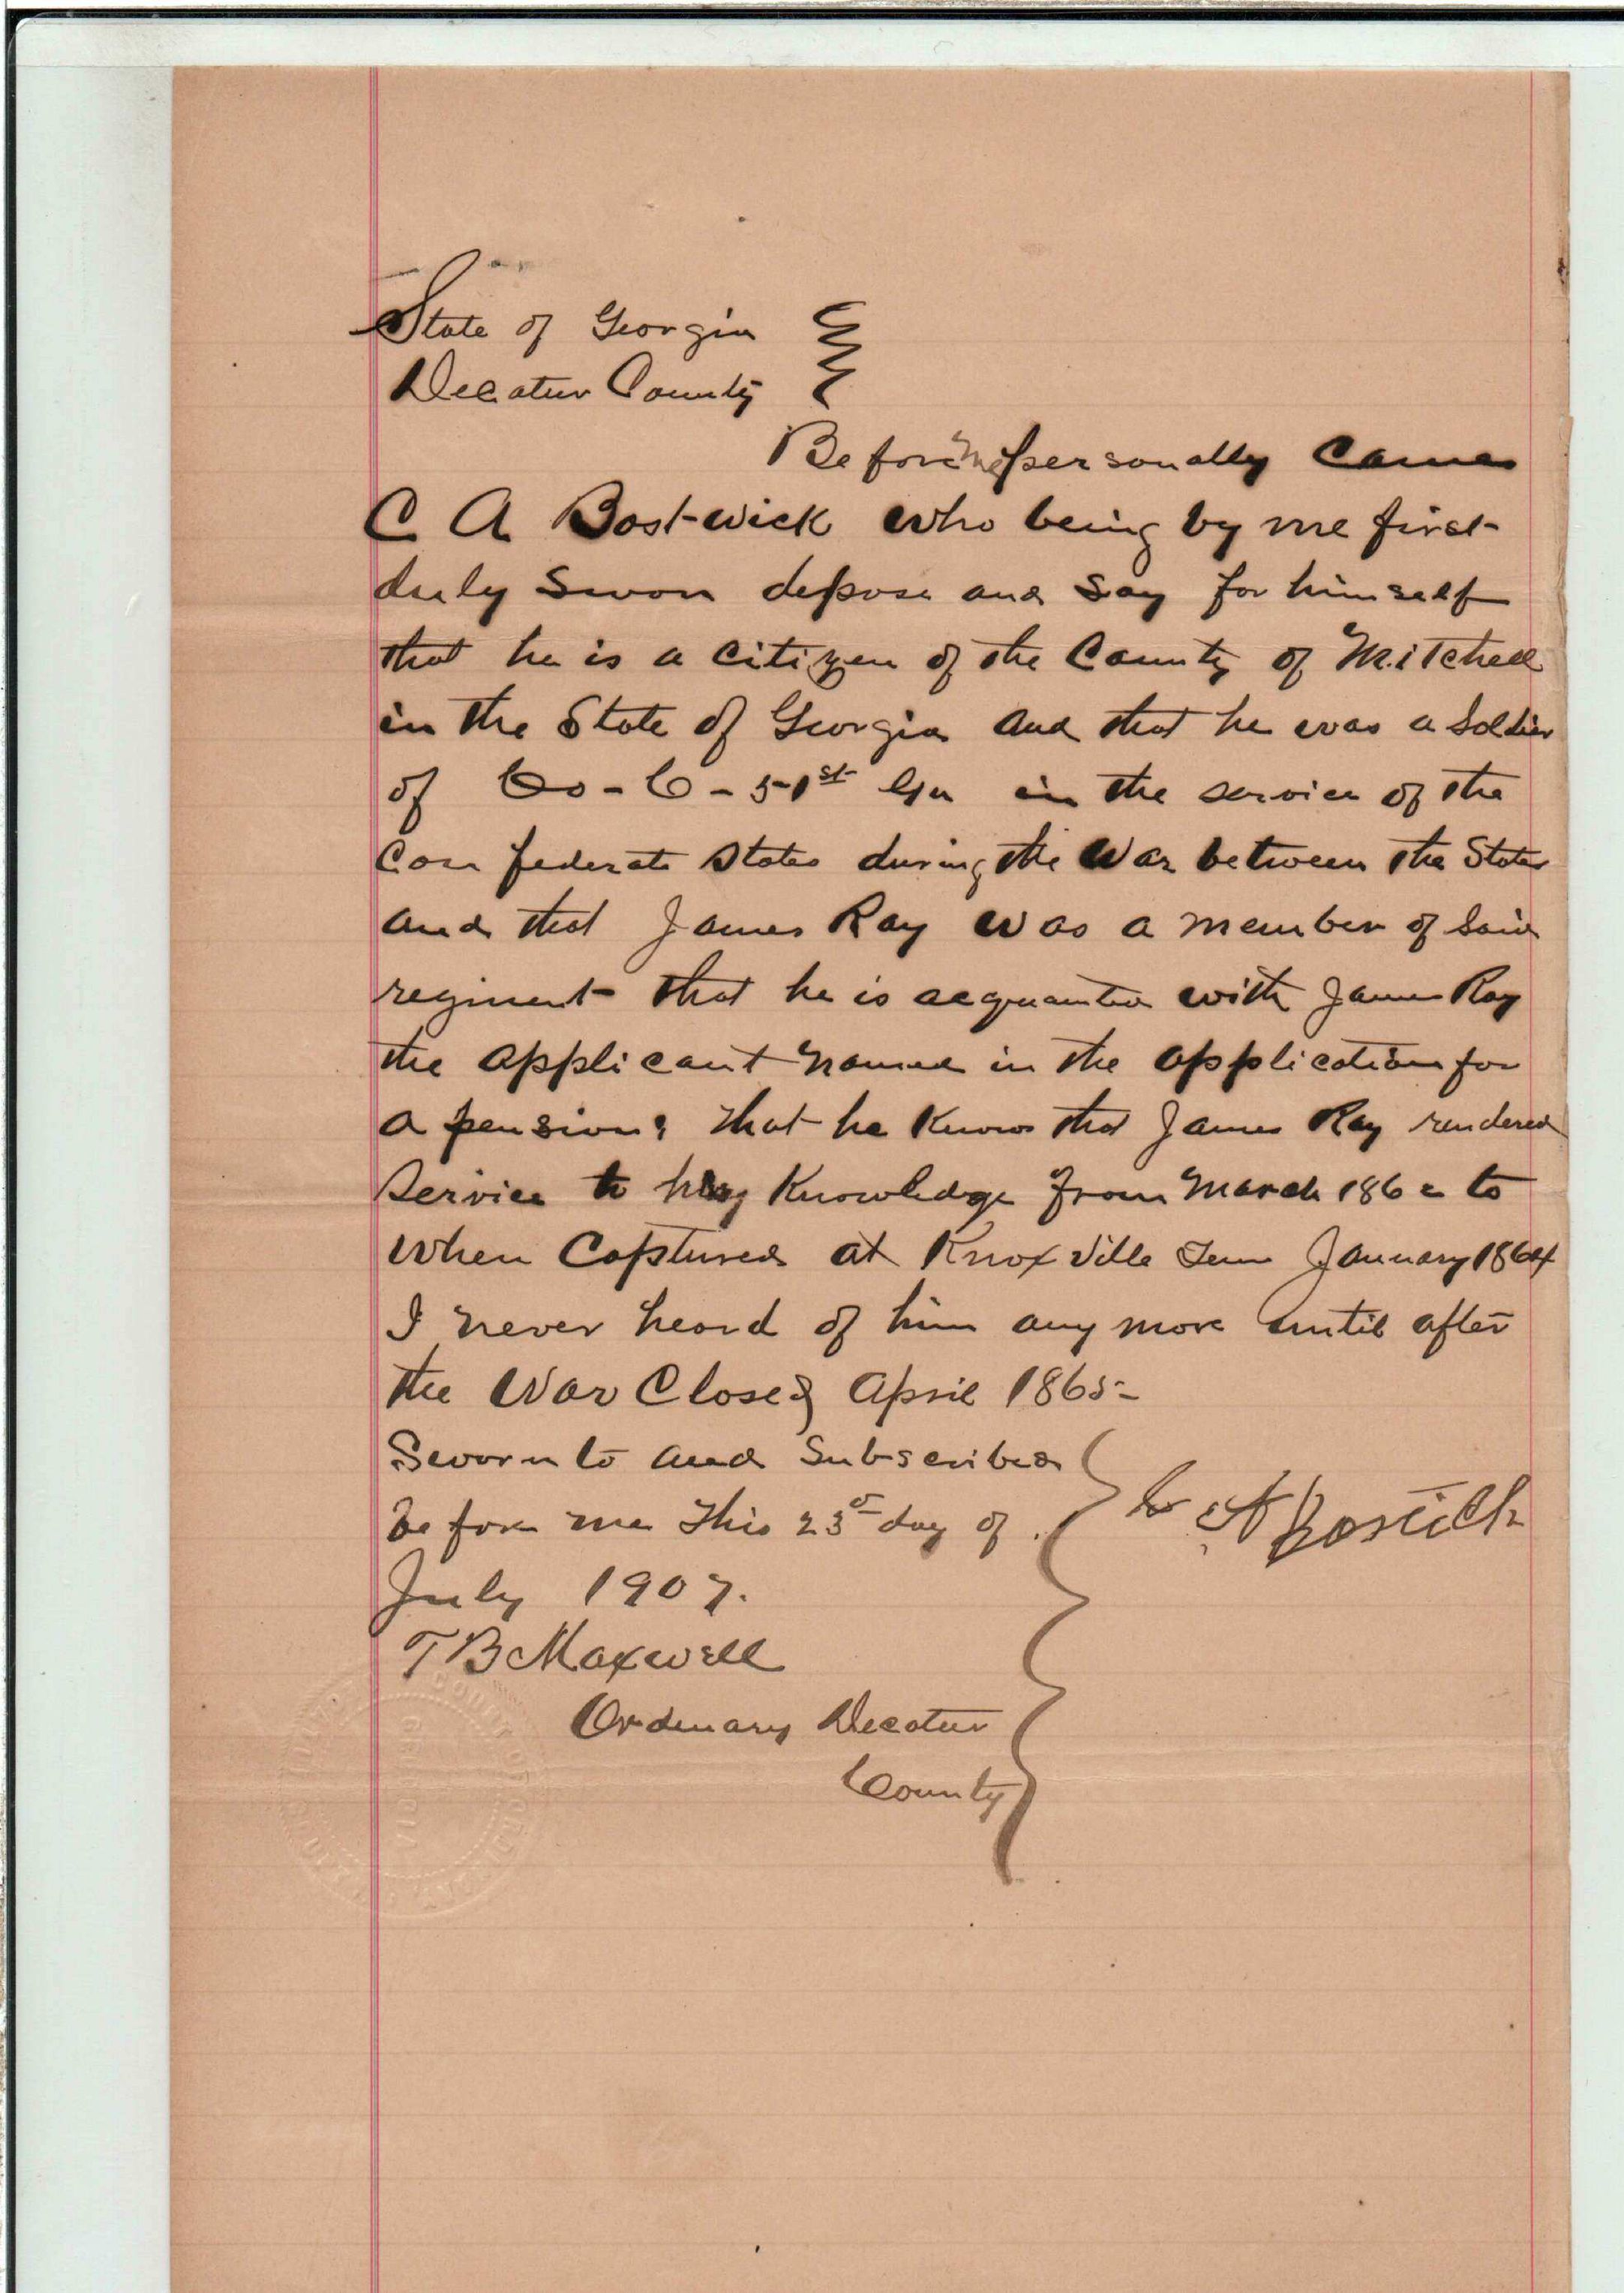 State of Georgia
Decatur County
Before me personally came
C A Bostwick who being by me first
duly swon depose and say for himself
that he is a citizen of the County of Mitchell
in the State of Georgia and that he was a Soldier
of Co - C - 51st Ga in the service of the
Confederate States during the War between the States
and that James Ray was a member of said
regiment that he is acquainted with James Ray
the applicant named in the application for
a pension; that he knows that James Ray rendered
Service to his Knowledge from March 1862 to
When Captured at Knoxville Tenn January 1864
I never heard of him any more until after
the War Closed April 1865-
Sworn to and Subscribed
before me this 23d day of
C A Bostick
July 1907.
T B Maxwell
Ordinary Decatur
County